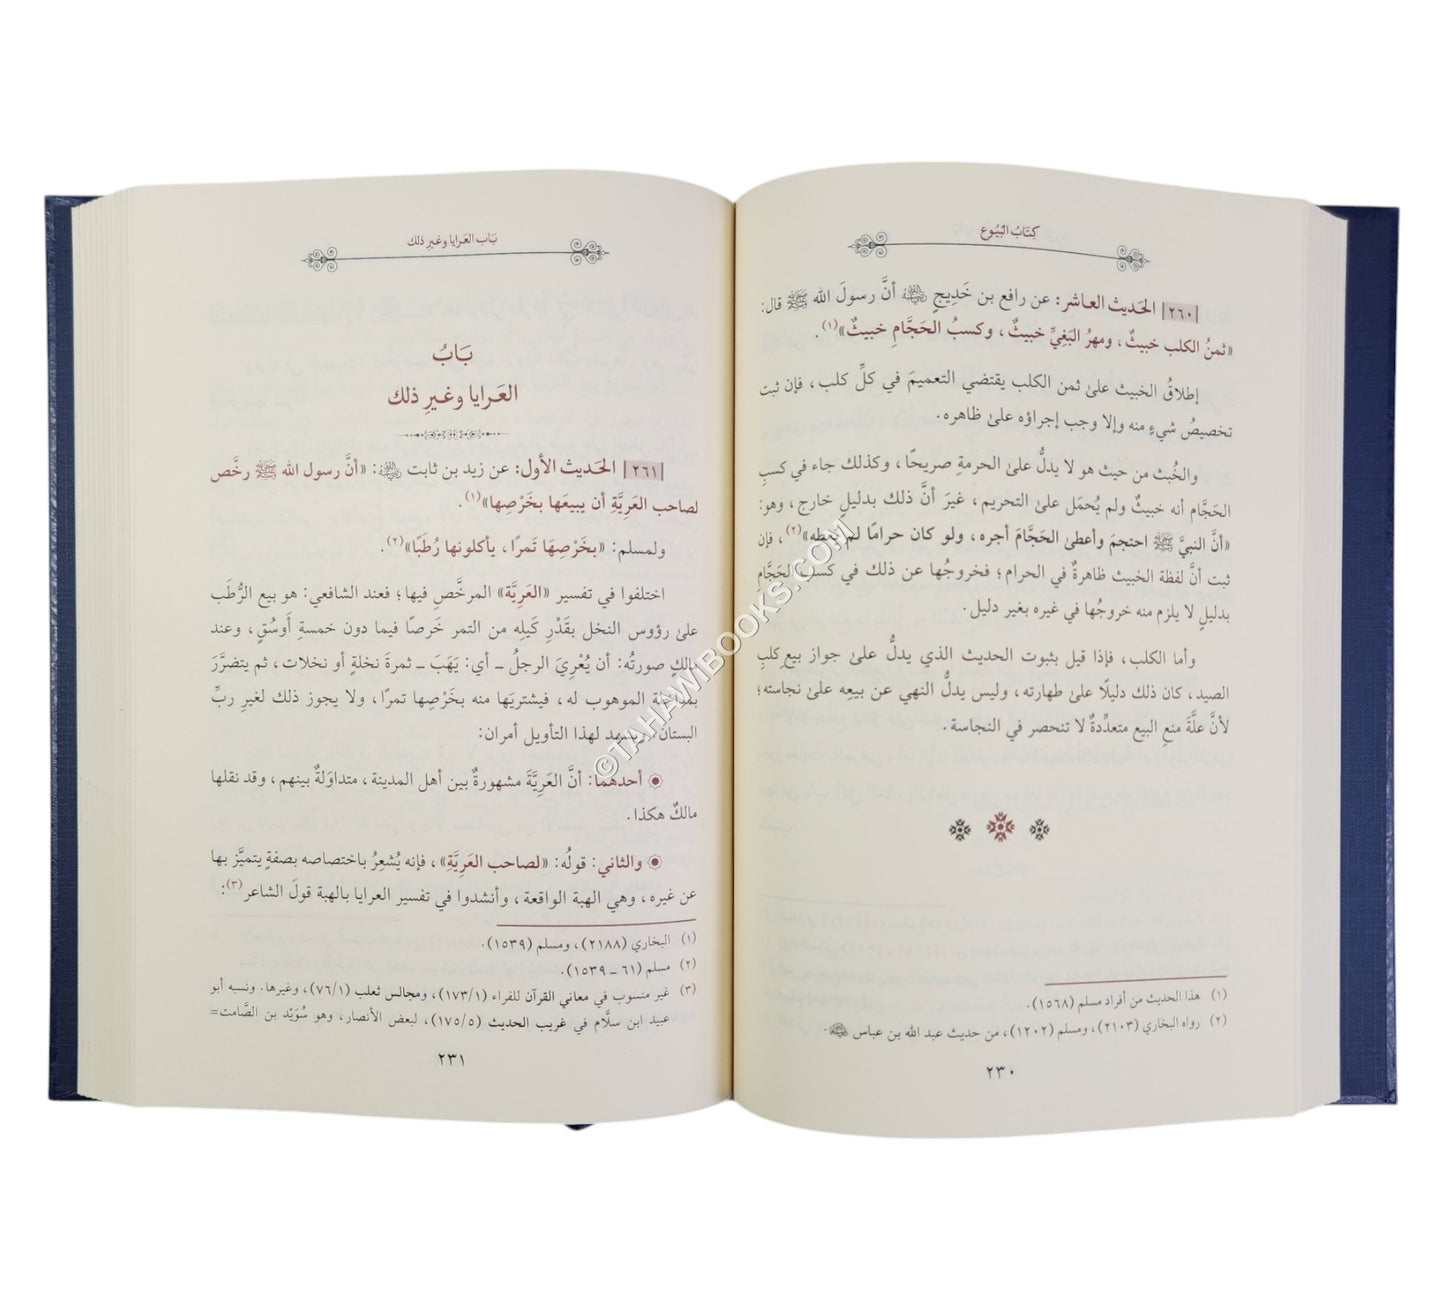 كِتَابُ الْبُيُوع
|٢٦٠| الحَديث العاشر: عن رافع بن خَدِيجٍ ﵁ أنَّ رسولَ الله ﷺ قال:
«ثمنُ الكلب خبيثٌ، ومهرُ البَغِيِّ خبيثٌ، وكسبُ الحَجَّامِ خبيثٌ»(١).
إطلاقُ الخبيث علىٰ ثمن الكلب يقتضي التعميمَ في كلِّ كلب، فإن ثبت
تخصيصُ شيءٍ منه وإلا وجب إجراؤه علىٰ ظاهره.
والخُبث من حيث هو لا يدلُّ علىٰ الحرمةِ صريحًا، وكذلك جاء في كسبِ
الحَجَّام أنه خبيثٌ ولم يُحمَل علىٰ التحريم، غيرَ أنَّ ذلك بدليلٍ خارج، وهو:
«أنَّ النبيَّ ﷺ احتجمَ وأعطىٰ الحَجَّامَ أجره، ولو كان حرامًا لم يعطه»(٢)، فإن
ثبت أنَّ لفظة الخبيث ظاهرةٌ في الحرام؛ فخروجُها عن ذلك في كسب الحَجَّام
بدليلٍ لا يلزم منه خروجُها في غيره بغير دليل.
وأما الكلب، فإذا قيل بثبوت الحديث الذي يدلُّ علىٰ جواز بيع كلبِ
الصيد، كان ذلك دليلًا علىٰ طهارته، وليس يدلُّ النهي عن بيعِه علىٰ نجاسته؛
لأنَّ علَّةَ منعِ البيع متعدِّدةٌ لا تنحصر في النجاسة.
(١) هذا الحديث من أفراد مسلم (١٥٦٨).
(٢) رواه البخاري (٢١٠٣)، ومسلم (١٢٠٢)، من حديث عبد الله بن عباس ﵄.
٢٣٠
بَاب العَرايا وغيرِ ذلك
بَابُ
العَرايا وغيرِ ذلك
|٢٦١| الحَديث الأول: عن زيد بن ثابت ﵁: «أنَّ رسول الله ﷺ رخَّص
لصاحب العَرِيَّةِ أن يبيعَها بخَرْصِها»(١).
ولمسلم: «بخَرْصِهَا تَمرًا، يأكلونها رُطَبًا»(٢).
اختلفوا في تفسير «العَرِيَّة» المرخَّصِ فيها؛ فعند الشافعي: هو بيع الرُّطَب
علىٰ رؤوس النخل بقَدْرِ كَيلِه من التمر خَرصًا فيما دون خمسةِ أَوسُقٍ، وعند
مالكٍ صورتُه: أن يُعْرِيَ الرجلُ ـ أي: يَهَبَ ـ ثمرةَ نخلةٍ أو نخلات، ثم يتضرَّرَ
بمداخلة الموهوب له، فيشتريَها منه بخَرْصِها تمرًا، ولا يجوز ذلك لغيرِ ربِّ
البستان، ويشهد لهذا التأويل أمران:
أحدهما: أنَّ العَرِيَّةَ مشهورةٌ بين أهل المدينة، متداوَلةٌ بينهم، وقد نقلها
مالكٌ هكذا.
والثاني: قولُه: «لصاحب العَرِيَّةِ»، فإنه يُشعِرُ باختصاصه بصفةٍ يتميَّز بها
عن غيره، وهي الهبة الواقعة، وأنشدوا في تفسير العرايا بالهبة قولَ الشاعر(٣):
(١) البخاري (٢١٨٨)، ومسلم (١٥٣٩).
(٢) مسلم (٦١ ـ ١٥٣٩).
(٣) غير منسوب في معاني القرآن للفراء (١٧٣/١)، ومجالس ثعلب (٧٦/١)، وغيرها. ونسبه أبو
عبيد ابن سلَّام في غريب الحديث (١٧٥/٥)، لبعض الأنصار، وهو سُوَيْد بن الصَّامت=
٢٣١
©TAHAWIBOOKS.COM